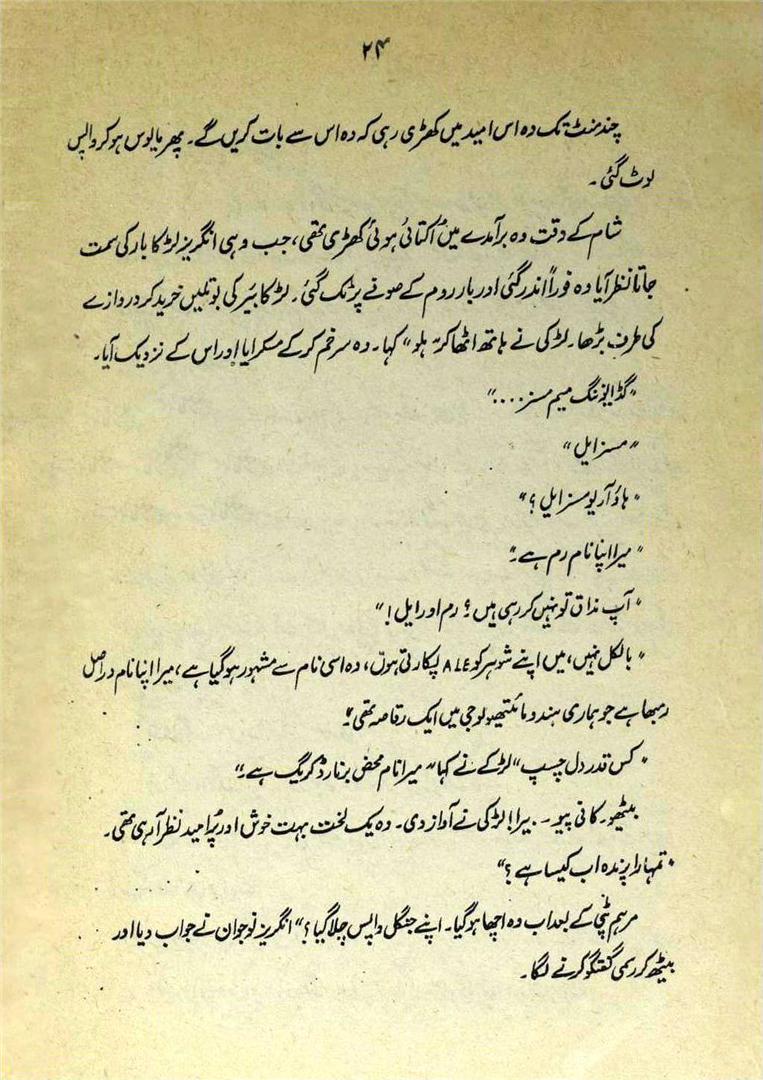 ۲۴
چند منٹ تک وہ اس امید میں کھڑی رہی کہ وہ اس سے بات کریں گے۔ پھر مایوس ہو کر واپس
لوٹ گئی۔
شام کے وقت وہ برآمدے میں اکتائی ہوئی کھڑی تھی، جب وہی انگریز لڑکا بار کی سمت
جاتا نظر آیا وہ فوراً اندر گئی اور بار روم کے صوفے پر ٹک گئی۔ لڑکا بیئر کی بوتلیں خرید کر دروازے
کی طرف بڑھا۔ لڑکی نے ہاتھ اٹھا کر "ہلو" کہا۔ وہ سر خم کر کے مسکرایا اور اس کے نزدیک آیا۔
"گڈ ایوننگ میم مسز ...."
"مسز ایل"
"ہاؤ آر یو مسز ایل؟"
"میرا اپنا نام رم ہے۔"
"آپ مذاق تو نہیں کر رہی ہیں؟ رم اور ایل!"
"بالکل نہیں، میں اپنے شوہر کو ALE پکارتی ہوں، وہ اسی نام سے مشہور ہو گیا ہے، میرا اپنا نام دراصل
رمبھا ہے جو ہماری ہندو مائتھیولوجی میں ایک رقاصہ تھی۔"
"کس قدر دل چسپ" لڑکے نے کہا "میرا نام محض برنارڈ کریگ ہے۔"
بیٹھو۔ کافی پیو۔۔ بیرا! لڑکی نے آواز دی۔ وہ یک لخت بہت خوش اور پُر امید نظر آ رہی تھی۔
"تمہارا پرندہ اب کیسا ہے؟"
مرہم پٹی کے بعد اب وہ اچھا ہو گیا۔ اپنے جنگل واپس چلا گیا؟" انگریز نوجوان نے جواب دیا اور
بیٹھ کر رسمی گفتگو کرنے لگا۔